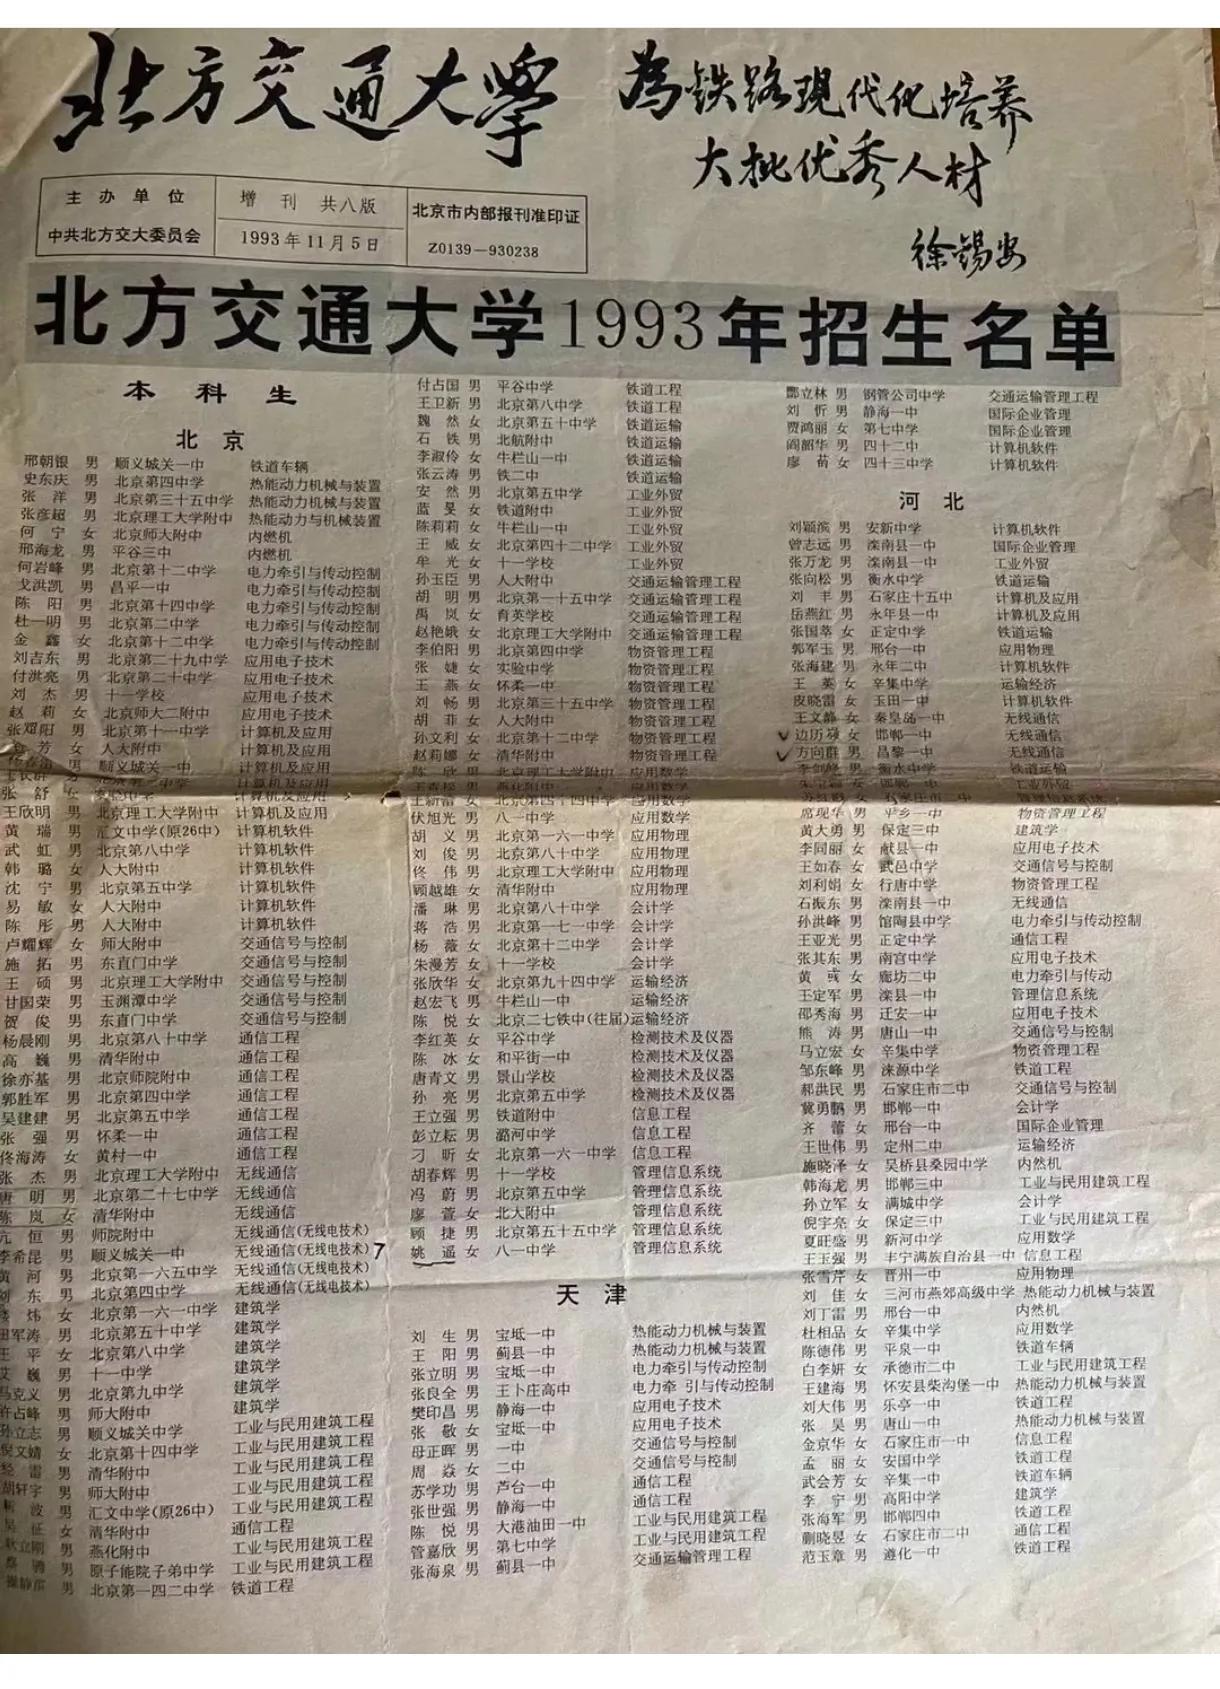 北方交通大学
为铁路现代化培养
大批优秀人材
徐锡安
主办单位
中共北方交大委员会
增刊 共八版
1993年11月5日
北京市内部报刊准印证
Z0139—930238
北方交通大学1993年招生名单
本科生
北京
邢朝银 男 顺义城关一中 铁道车辆
史东庆 男 北京第四中学 热能动力机械与装置
张洋 男 北京第三十五中学 热能动力机械与装置
张彦超 男 北京理工大学附中 热能动力与机械装置
何宁 女 北京师大附中 内燃机
邢海龙 男 平谷三中 内燃机
何岩峰 男 北京第十二中学 电力牵引与传动控制
戈洪凯 男 昌平一中 电力牵引与传动控制
陈阳 男 北京第十四中学 电力牵引与传动控制
杜一明 男 北京第二中学 电力牵引与传动控制
金鑫 女 北京第十二中学 电力牵引与传动控制
刘吉东 男 北京第二十九中学 应用电子技术
付洪亮 男 北京第二十中学 应用电子技术
刘杰 男 十一学校 应用电子技术
赵莉 女 北京师大二附中 应用电子技术
张耀阳 男 北京第十一中学 计算机及应用
芳 女 人大附中 计算机及应用
男 顺义城关一中 计算机及应用
计算机及应用
张舒 女 计算机及应用
王欣明 男 北京理工大学附中 计算机及应用
黄瑞 男 汇文中学(原26中) 计算机软件
武虹 男 北京第八中学 计算机软件
韩璐 女 人大附中 计算机软件
沈宁 男 北京第五中学 计算机软件
易敏 女 人大附中 计算机软件
陈彤 男 人大附中 计算机软件
卢耀辉 女 师大附中 交通信号与控制
施拓 男 东直门中学 交通信号与控制
王硕 男 北京理工大学附中 交通信号与控制
甘国荣 男 玉渊潭中学 交通信号与控制
贺俊 男 东直门中学 交通信号与控制
杨晨刚 男 北京第八十中学 通信工程
高巍 男 清华附中 通信工程
徐亦基 男 北京师院附中 通信工程
郭胜军 男 北京第四中学 通信工程
吴建建 男 北京第五中学 通信工程
张强 男 怀柔一中 通信工程
佟海涛 女 黄村一中 通信工程
张杰 男 北京理工大学附中 无线通信
唐明 男 北京第二十七中学 无线通信
陈岚 女 清华附中 无线通信
亢恒 男 师院附中 无线通信(无线电技术)
李希昆 男 顺义城关一中 无线通信(无线电技术)
黄河 男 北京第一六五中学 无线通信(无线电技术)
刘东 男 北京第四中学 无线通信(无线电技术)
炜 女 北京第一六一中学 建筑学
田军涛 男 北京第五十中学 建筑学
王平 女 北京第八中学 建筑学
艾巍 男 十一中学 建筑学
马克义 男 北京第九中学 建筑学
许占峰 男 师大附中 建筑学
孙立志 男 顺义城关中学 工业与民用建筑工程
倪文婧 女 北京第十四中学 工业与民用建筑工程
雷 男 清华附中 工业与民用建筑工程
胡轩宇 男 师大附中 工业与民用建筑工程
波 男 汇文中学(原26中) 工业与民用建筑工程
征 女 清华附中 通信工程
耿立刚 男 燕化附中 工业与民用建筑工程
男 原子能院子弟中学 工业与民用建筑工程
男 北京第一四二中学 铁道工程
付占国 男 平谷中学 铁道工程
王卫新 男 北京第八中学 铁道工程
魏然 女 北京第五十中学 铁道运输
石铁 男 北航附中 铁道运输
李淑伶 女 牛栏山一中 铁道运输
张云涛 男 铁二中 铁道运输
安然 男 北京第五中学 工业外贸
蓝旻 女 铁道附中 工业外贸
陈莉莉 女 牛栏山一中 工业外贸
王威 女 北京第四十二中学 工业外贸
牟光 女 十一学校 工业外贸
孙玉臣 男 人大附中 交通运输管理工程
胡明 男 北京第一十五中学 交通运输管理工程
禹岚 女 育英学校 交通运输管理工程
赵艳娥 女 北京理工大学附中 交通运输管理工程
李伯阳 男 北京第四中学 物资管理工程
张婕 女 实验中学 物资管理工程
王燕 女 怀柔一中 物资管理工程
刘畅 男 北京第三十五中学 物资管理工程
胡菲 女 人大附中 物资管理工程
孙文利 女 北京第十二中学 物资管理工程
赵莉娜 女 清华附中 物资管理工程
陈欣 男 北京理工大学附中 应用数学
燕化附中 应用数学
王新雷 女 北京第四十四中学 应用数学
伏旭光 男 八一中学 应用数学
胡义 男 北京第一六一中学 应用物理
刘俊 男 北京第八十中学 应用物理
佟伟 男 北京理工大学附中 应用物理
顾越雄 女 清华附中 应用物理
潘琳 男 北京第八十中学 会计学
蒋浩 男 北京第一七一中学 会计学
杨薇 女 北京第十二中学 会计学
朱漫芳 女 十一学校 会计学
张欣华 女 北京第九十四中学 运输经济
赵宏飞 男 牛栏山一中 运输经济
陈悦 女 北京二七铁中(往届)运输经济
李红英 女 平谷中学 检测技术及仪器
陈冰 女 和平街一中 检测技术及仪器
唐青文 男 景山学校 检测技术及仪器
孙亮 男 北京第五中学 检测技术及仪器
王立强 男 铁道附中 信息工程
彭立耘 男 潞河中学 信息工程
刁昕 女 北京第一六一中学 信息工程
胡春辉 男 十一学校 管理信息系统
冯蔚 男 北京第五中学 管理信息系统
廖萱 女 北大附中 管理信息系统
顾捷 男 北京第五十五中学 管理信息系统
7 姚遥 女 八一中学 管理信息系统
天津
刘生 男 宝坻一中 热能动力机械与装置
王阳 男 蓟县一中 热能动力机械与装置
张立明 男 宝坻一中 电力牵引与传动控制
张良全 男 王卜庄高中 电力牵 引与传动控制
樊印昌 男 静海一中 应用电子技术
张敬 女 宝坻一中 应用电子技术
母正晖 男 一中 交通信号与控制
周焱 女 二中 交通信号与控制
苏学功 男 芦台一中 通信工程
张世强 男 静海一中 通信工程
陈悦 男 大港油田一中 工业与民用建筑工程
管嘉欣 男 第七中学 工业与民用建筑工程
张海泉 男 蓟县一中 交通运输管理工程
酆立林 男 钢管公司中学 交通运输管理工程
刘忻 男 静海一中 国际企业管理
贾鸿丽 女 第七中学 国际企业管理
阎韶华 男 四十二中 计算机软件
廖苗 女 四十三中学 计算机软件
河北
刘颖滨 男 安新中学 计算机软件
曾志远 男 滦南县一中 国际企业管理
张万龙 男 滦南县一中 工业外贸
张向松 男 衡水中学 铁道运输
刘丰 男 石家庄十五中 计算机及应用
岳燕红 女 永年县一中 计算机及应用
张国莘 女 正定中学 铁道运输
郭军玉 男 邢台一中 应用物理
张海建 男 永年二中 计算机软件
王英 女 辛集中学 运输经济
皮晓雷 女 玉田一中 计算机软件
王文静 女 秦皇岛一中 无线通信
边历硕 女 邯郸一中 无线通信
方向群 男 昌黎一中 无线通信
李剑峰 男 衡水中学 铁道运输
邯郸一中 工业外贸
石家庄市二中 管理信息系统
席现华 男 平乡一中 物资管理工程
黄大勇 男 保定三中 建筑学
李同丽 女 献县一中 应用电子技术
王如春 女 武邑中学 交通信号与控制
刘利娟 女 行唐中学 物资管理工程
石振东 男 滦南县一中 无线通信
孙洪峰 男 馆陶县中学 电力牵引与传动控制
王亚光 男 正定中学 通信工程
张其东 男 南宫中学 应用电子技术
黄彧 女 廊坊二中 电力牵引与传动
王定军 男 滦县一中 管理信息系统
邵秀海 男 迁安一中 应用电子技术
熊涛 男 唐山一中 交通信号与控制
马立宏 女 辛集中学 物资管理工程
邹东峰 男 涞源中学 铁道工程
郝洪民 男 石家庄市二中 交通信号与控制
冀勇鹏 男 邯郸一中 会计学
齐蕾 女 邢台一中 国际企业管理
王世伟 男 定州二中 运输经济
施晓泽 女 吴桥县桑园中学 内然机
韩海龙 男 邯郸三中 工业与民用建筑工程
孙立军 女 满城中学 会计学
倪宇亮 女 保定三中 工业与民用建筑工程
夏旺盛 男 新河中学 应用数学
王玉强 男 丰宁满族自治县一中 信息工程
张雪芹 女 晋州一中 应用物理
刘佳 女 三河市燕郊高级中学 热能动力机械与装置
刘丁雷 男 邢台一中 内然机
杜相品 女 辛集中学 应用数学
陈德伟 男 平泉一中 铁道车辆
白李妍 女 承德市二中 工业与民用建筑工程
王建海 男 怀安县柴沟堡一中 热能动力机械与装置
刘大伟 男 乐亭一中 铁道工程
张昊 男 唐山一中 热能动力机械与装置
金京华 女 石家庄市一中 信息工程
孟丽 女 安国中学 铁道工程
武会芳 女 辛集一中 铁道车辆
李宁 男 高阳中学 建筑学
张海军 男 邯郸四中 铁道工程
蒯晓昱 女 石家庄二中 通信工程
范玉章 男 遵化一中 铁道工程